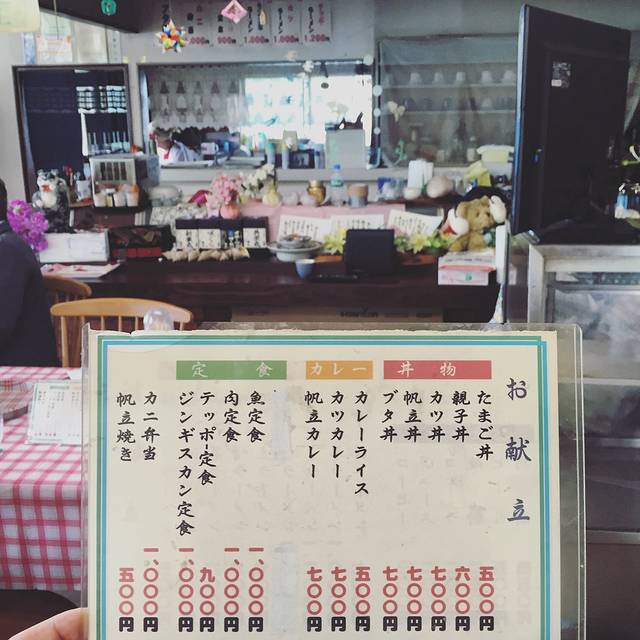 ,000円
900円
1,000円
1,000円
1,200円
お献立
丼物
たまご丼 五〇〇円
親子丼 六〇〇円
カツ丼 七〇〇円
帆立丼 七〇〇円
ブタ丼 七〇〇円
カレー
カレーライス 五〇〇円
カツカレー 七〇〇円
帆立カレー 七〇〇円
定食
魚定食 一、〇〇〇円
肉定食 一、〇〇〇円
テッポー定食 九〇〇円
ジンギスカン定食 一、〇〇〇円
カニ弁当 一、〇〇〇円
帆立焼き 五〇〇円